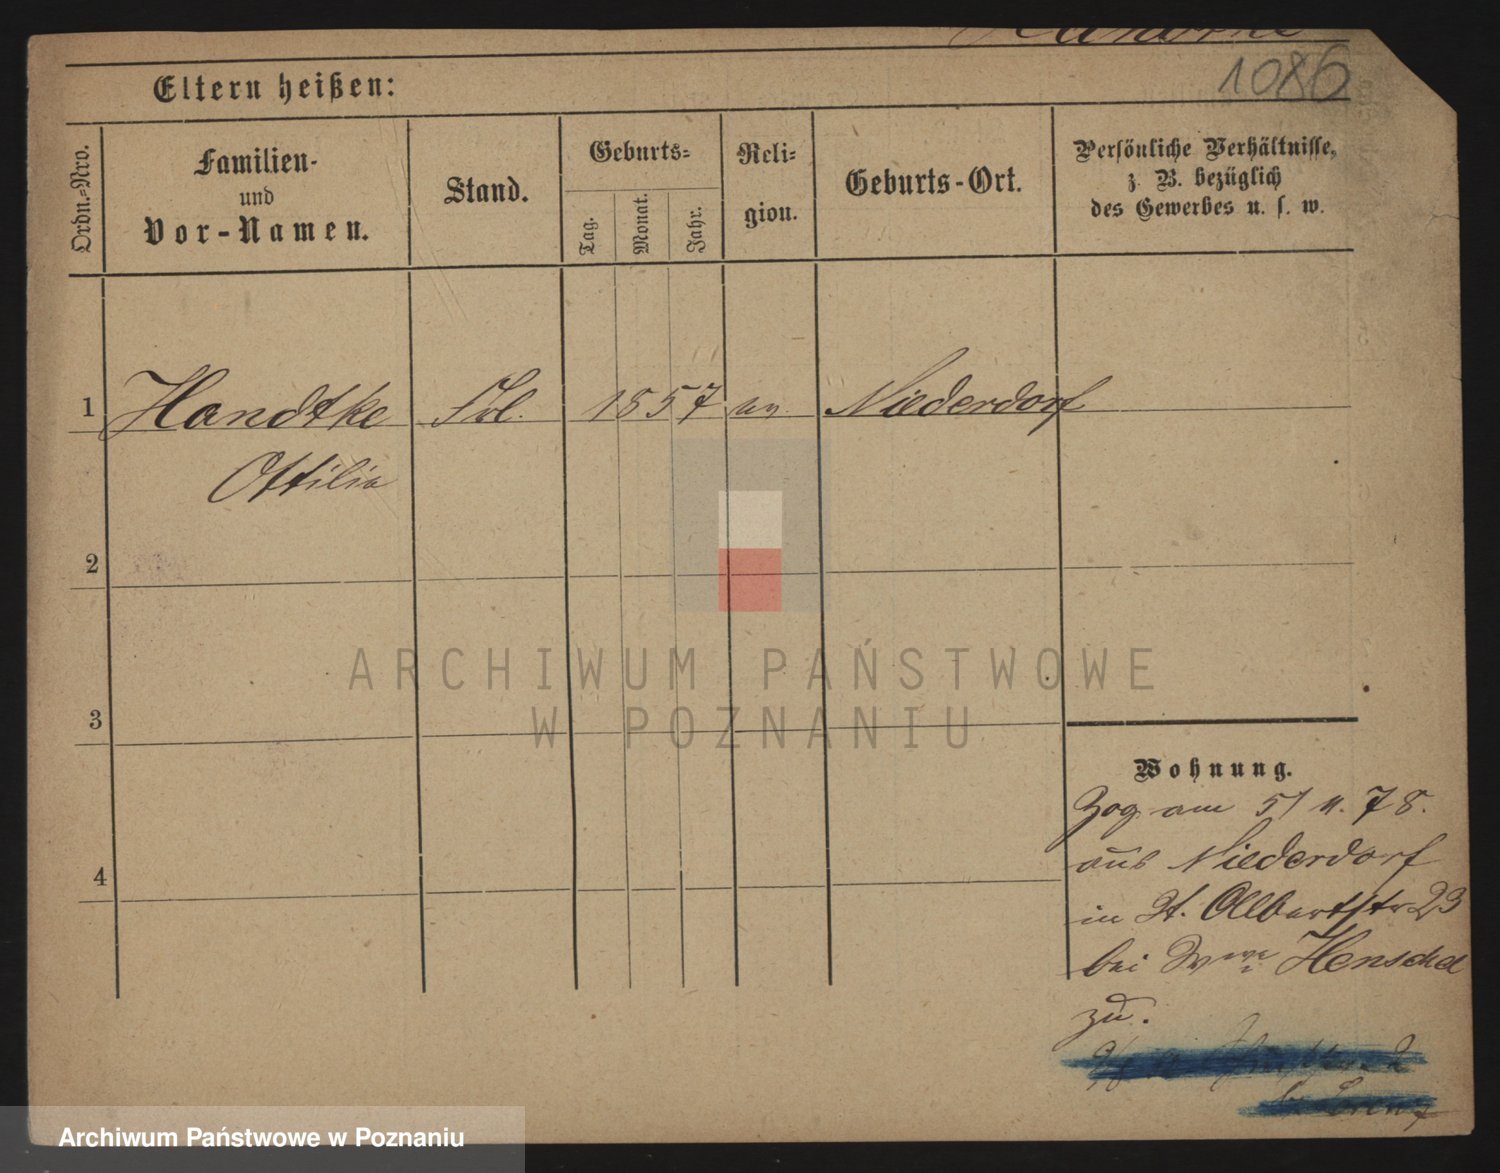 1086
Eltern heißen:
Ordn.-Nro.
Familien-
und
Vor-Namen.
Stand.
Geburts-
Tag.
Monat.
Jahr.
Reli-
gion.
Geburts-Ort.
Persönliche Verhältnisse,
z. B. bezüglich
des Gewerbes u. s. w.
1 Handtke Frl. 1857 ev. Niederdorf
Ottilie
2
3
4
ARCHIWUM PAŃSTWOWE
W POZNANIU
Wohnung.
Zog am 5/11.78.
aus Niederdorf
in St. Albertstr 23
bei Wwe Henschel
zu.
Archiwum Państwowe w Poznaniu